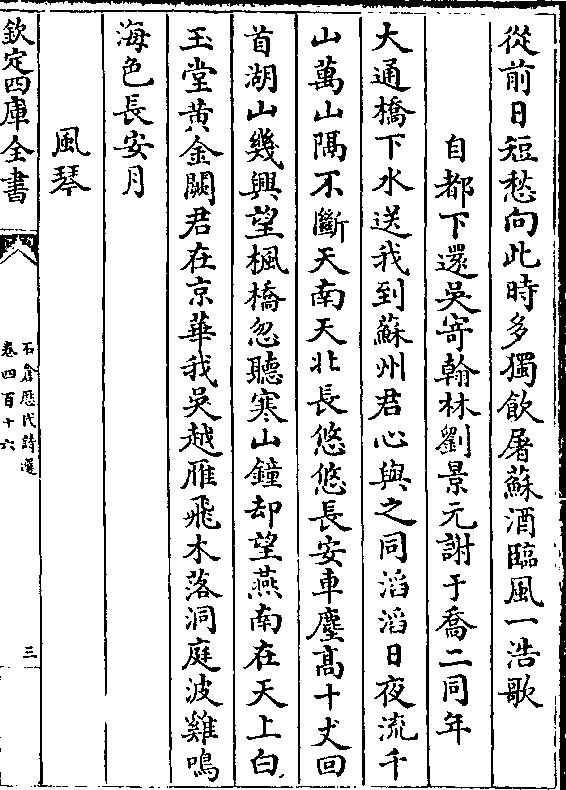 從前日短愁向此時多獨飲屠蘇酒臨風一浩歌
自都下還吳寄翰林劉景元謝于喬二同年
大通橋下水送我到蘇州君心與之同滔滔日夜流千
山萬山隔不斷天南天北長悠悠長安車塵高十丈回
首湖山幾興望楓橋忽聽寒山鐘却望燕南在天上白
玉堂黄金闕君在京華我吳越雁飛木落洞庭波雞鳴
海色長安月
風琴
欽定四庫全書
石倉歷代詩選
卷四百十六
三